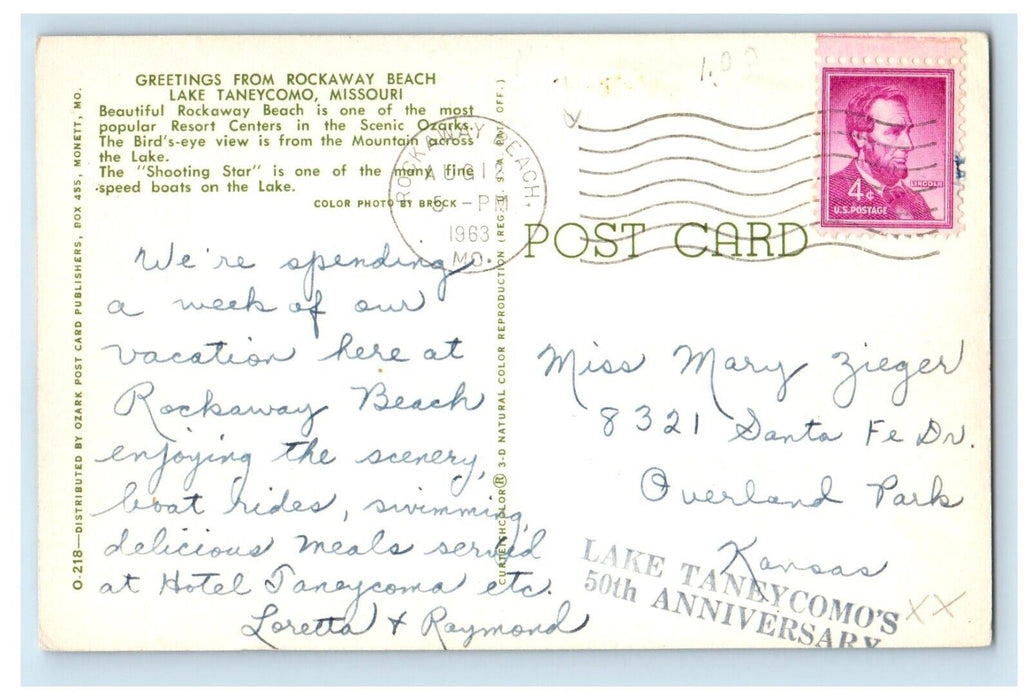 GREETINGS FROM ROCKAWAY BEACH
LAKE TANEYCOMO, MISSOURI
Beautiful Rockaway Beach is one of the most
popular Resort Centers in the Scenic Ozarks.
The Bird's-eye view is from the Mountain across
the Lake.
The "Shooting Star" is one of the many fine
speed boats on the Lake.
COLOR PHOTO BY BROCK
O-218—DISTRIBUTED BY OZARK POST CARD PUBLISHERS, BOX 455, MONETT, MO.
We're spending
a week of our
vacation here at
Rockaway Beach
enjoying the scenery,
boat rides, swimming,
delicious meals served
at Hotel Taneycomo etc.
Loretta + Raymond
CURTEICHCOLOR® 3-D NATURAL COLOR REPRODUCTION (REG. U. S. A. PAT. OFF.)
ROCKAWAY BEACH,
AUG
5 -PM
1963
MO.
POST CARD
1.00
4¢
LINCOLN
U.S. POSTAGE
Miss Mary Zieger
8321 Santa Fe Dr.
Overland Park
Kansas
LAKE TANEYCOMO'S
50th ANNIVERSARY
XX